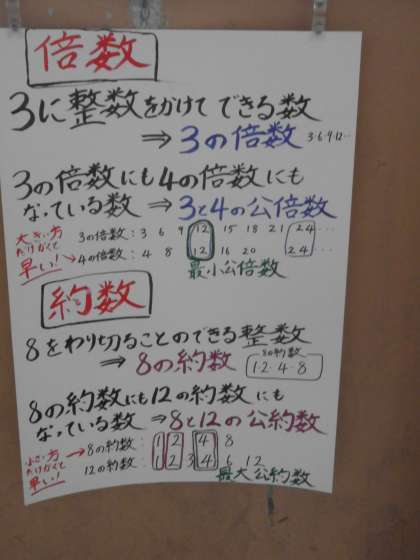 倍数
3に整数をかけてできる数
⇒ 3の倍数 3・6・9・12…
3の倍数にも4の倍数にも
なっている数 ⇒ 3と4の公倍数
大きい方
だけかくと
早い!
3の倍数: 3 6 9 12 15 18 21 24 …
→ 4の倍数: 4 8 12 16 20 24 …
最小公倍数
約数
8をわり切ることのできる整数
⇒ 8の約数
8の約数
1・2・4・8
8の約数にも12の約数にも
なっている数 ⇒ 8と12の公約数
小さい方
だけかくと
早い!
→ 8の約数: 1 2 4 8
12の約数: 1 2 3 4 6 12
最大公約数